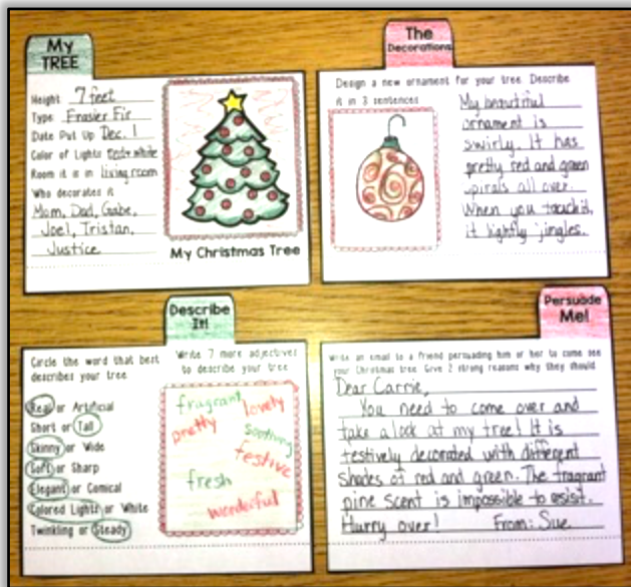 My
TREE
Height 7 feet
Type Frasier Fir
Date Put Up Dec. 1
Color of Lights white
Room it is in living room
Who decorates it
Mom, Dad, Gabe,
Joel, Tristan,
Justice
My Christmas Tree
The
Decorations
Design a new ornament for your tree. Describe
it in 3 sentences
My beautiful
ornament is
swirly. It has
pretty red and green
spirals all over.
When you touch it,
it lightly jingles.
Describe
It!
Circle the word that best
describes your tree
Real or Artificial
Short or Tall
Skinny or Wide
Soft or Sharp
Elegant or Comical
Colored Lights or White
Twinkling or Steady
Write 7 more adjectives
to describe your tree
fragrant
lovely
pretty
soothing
festive
fresh
wonderful
Persuade
Me!
Write an email to a friend persuading him or her to come see
your Christmas tree. Give 2 strong reasons why they should
Dear Carrie,
You need to come over and
take a look at my tree! It is
festively decorated with different
shades of red and green. The fragrant
pine scent is impossible to resist.
Hurry over! From: Sue